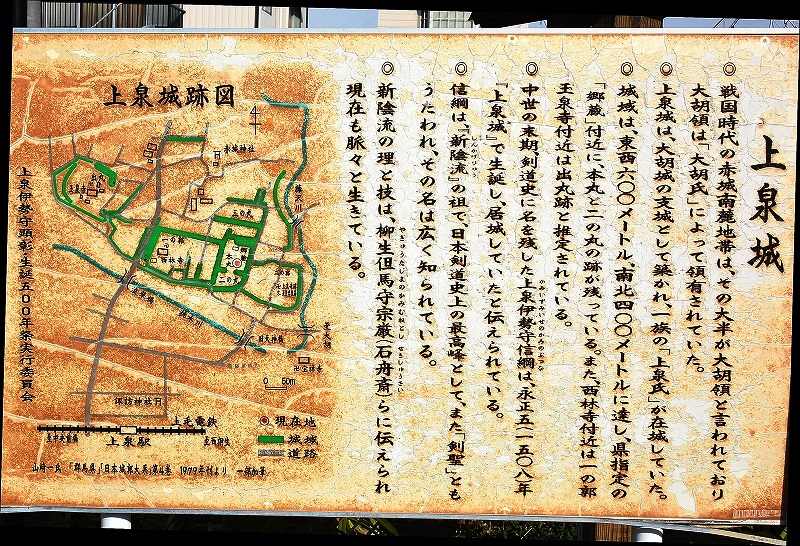 上泉城
◎戦国時代の赤城南麓地帯は、その大半が大胡領と言われており
大胡領は「大胡氏」によって領有されていた。
◎上泉城は、大胡城の支城として築かれ、一族の「上泉氏」が在城していた。
◎城域は、東西六〇〇メートル、南北四〇〇メートルに達し、県指定の
「郷蔵」付近に、本丸と二の丸の跡が残っている。また、西林寺付近は一の郭
玉泉寺付近は出丸跡と推定されている。
◎中世の末期剣道史に名を残した上泉伊勢守信綱は、永正五(一五〇八)年
かみいずみいせのかみのぶつな
『上泉城』で生誕し、居城していたと伝えられている。
◎信綱は『新陰流』の祖で、日本剣道史上の最高峰として、また「剣聖」とも
しんかげりゅう
うたわれ、その名は広く知られている。
◎新陰流の理と技は、柳生但馬守宗厳(石舟斎)らに伝えられ
やぎゅうたじまのかみむねとし せきしゅうさい
現在も脈々と生きている。
上泉城跡図
赤城神社
藤沢川
三の丸
出丸
玉泉寺
一の郭
西林寺
郷蔵
本丸
二の丸
諏訪神社
0 50m
上毛電鉄
至中央前橋
上泉駅
至西桐生
現在地
城域
道路
山崎一氏 「群馬県」「日本城郭大系」第4巻 1979年刊より 一部加筆
上泉伊勢守顕彰生誕五〇〇年祭実行委員会